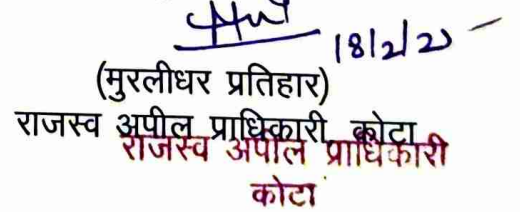 18/2/21
(मुरलीधर प्रतिहार)
राजस्व अपील प्राधिकारी, कोटा
राजस्व अपील प्राधिकारी
कोटा